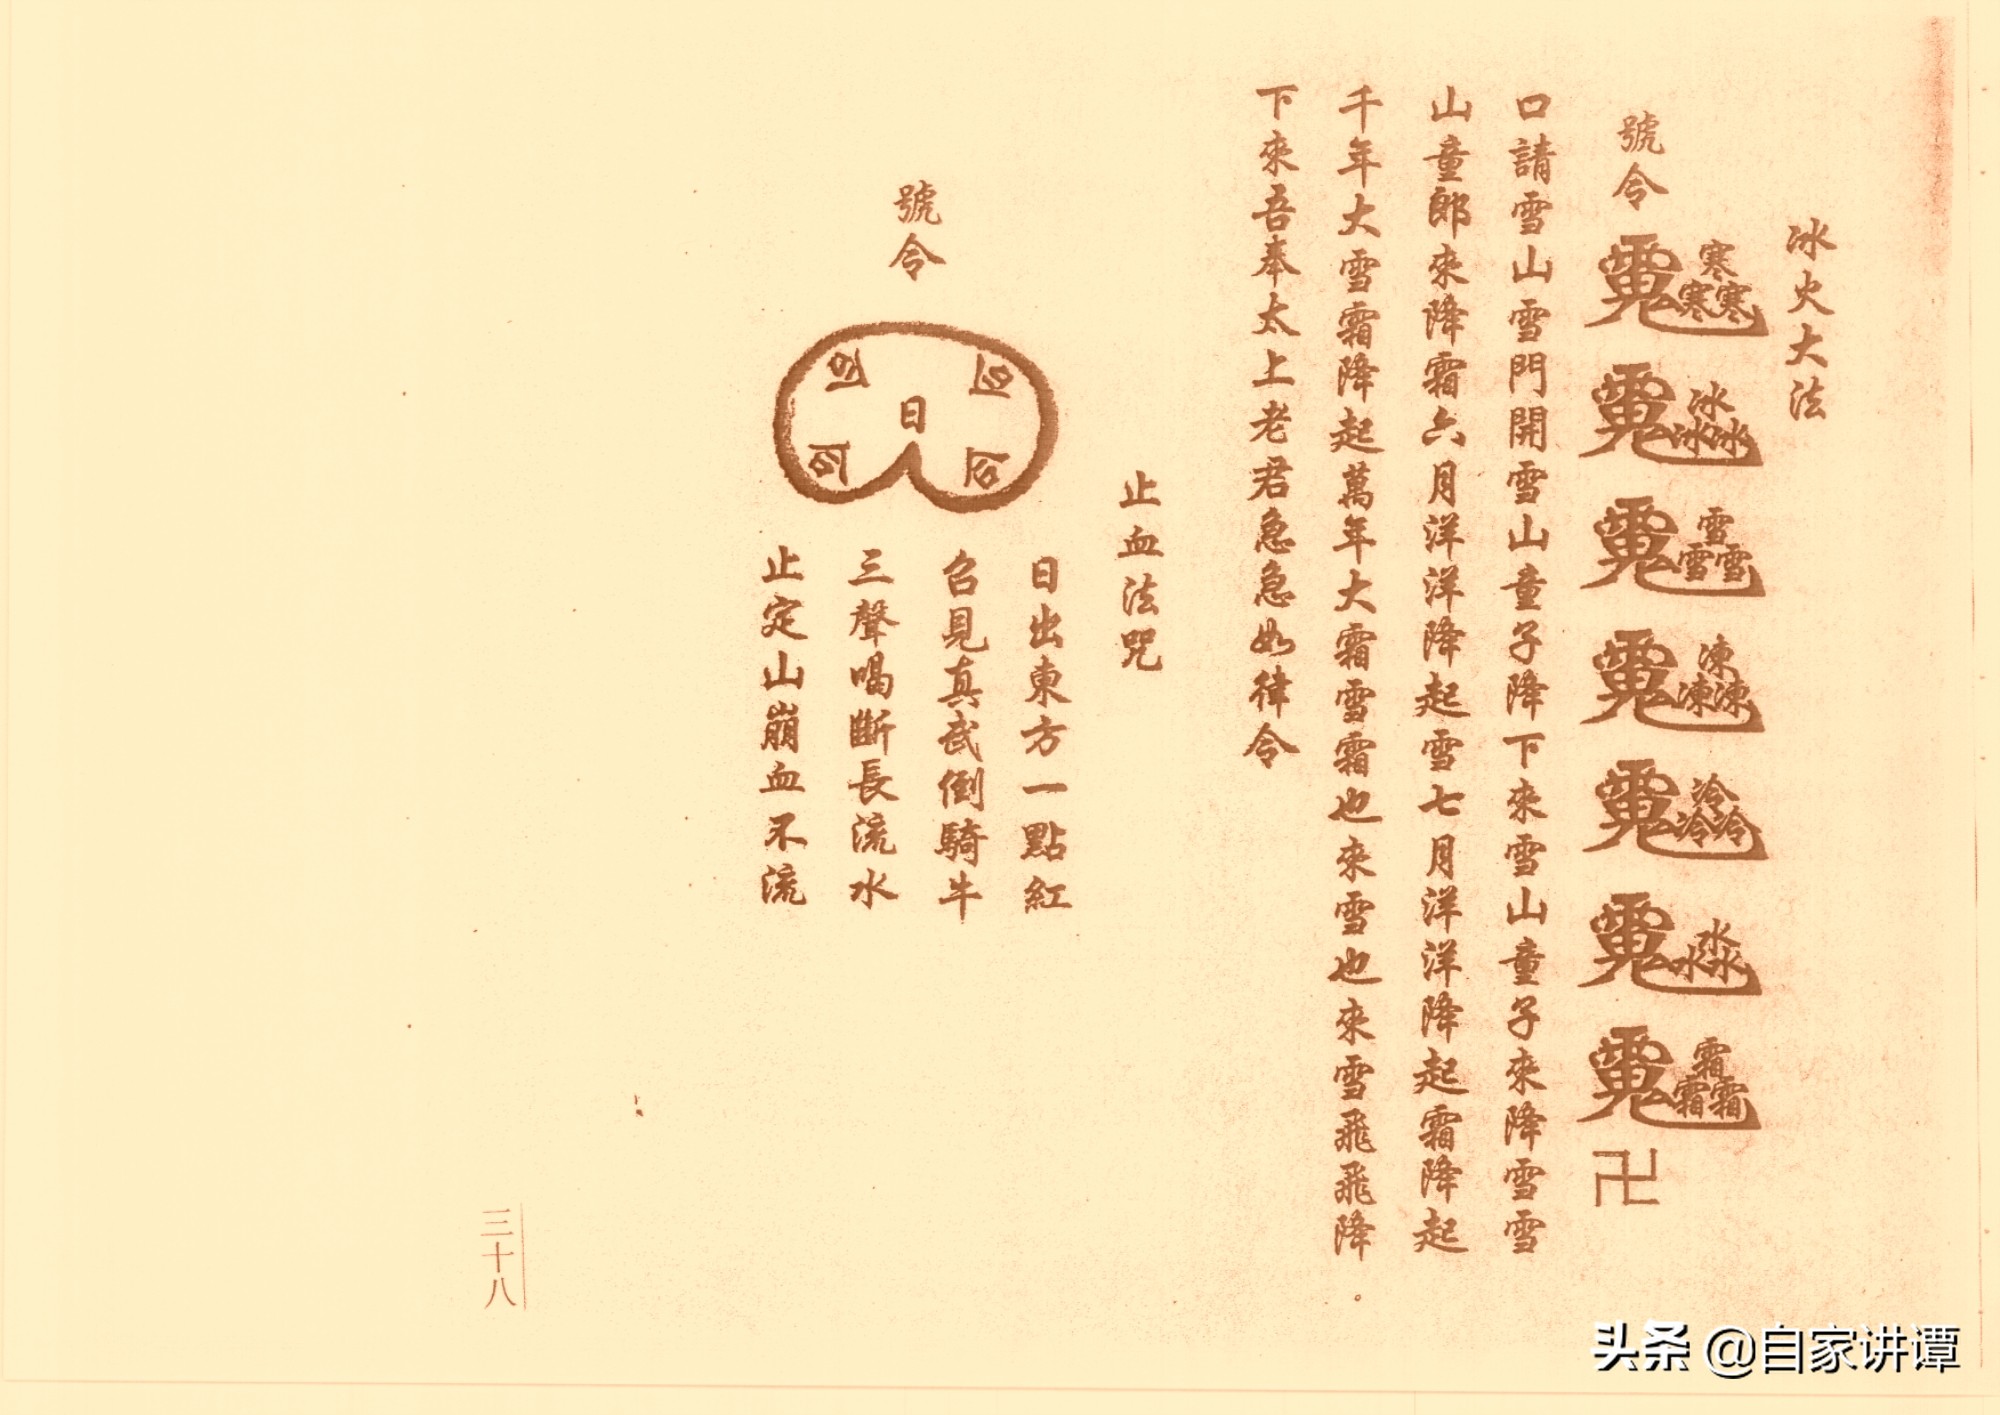 冰火大法
號令
寒寒寒
冰冰冰
雪雪雪
凍凍凍
冷冷冷
水水水
霜霜霜
卍
口請雪山雪門開雪山童子降下來雪山童子來降雪雪
山童郎來降霜六月洋洋降起雪七月洋洋降起霜降起
千年大雪霜降起萬年大霜雪霜也來雪也來雪飛飛降。
下來吾奉太上老君急急如律令
止血法咒
號令
日
日出東方一點紅
召見真武倒騎牛
三聲喝斷長流水
止定山崩血不流
三十八
头条 @自家讲谭